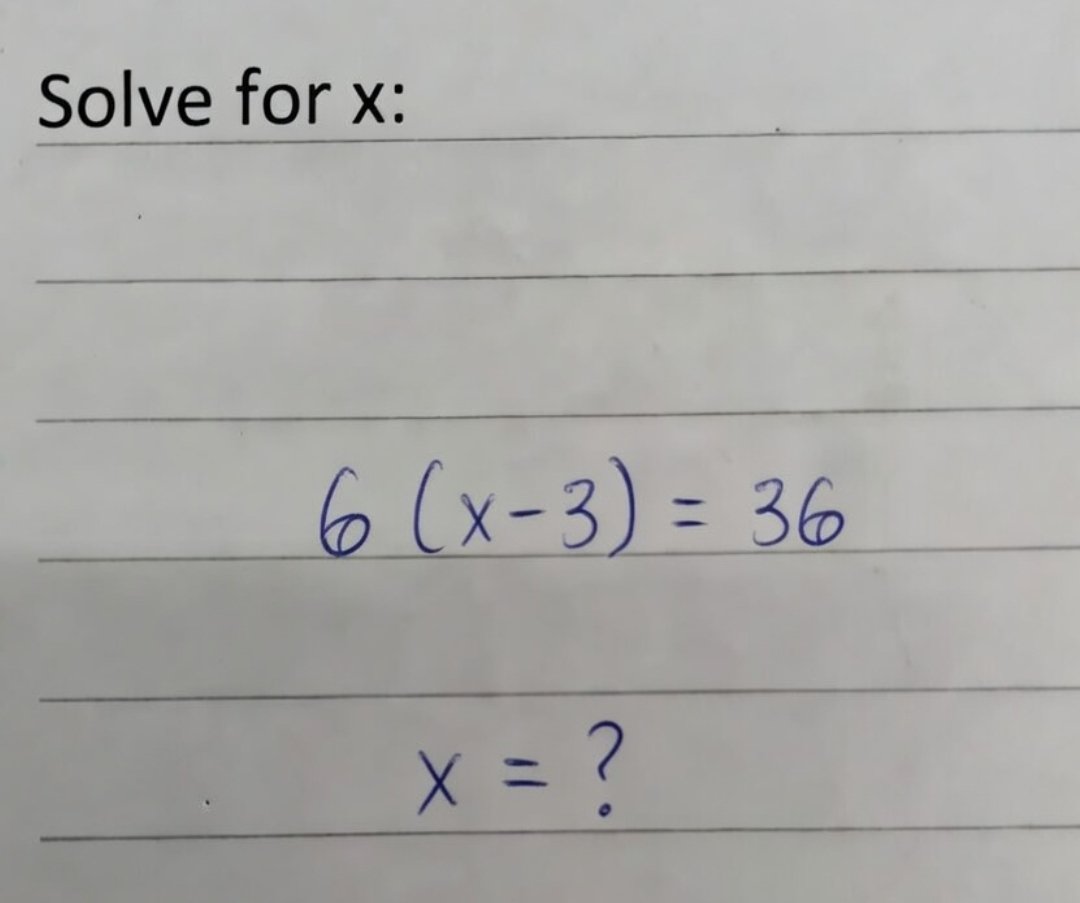 Solve for x:
6 (x-3) = 36
x = ?